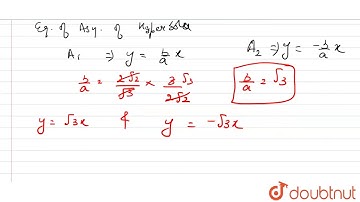 Eq. of Asy. of Hyperbola
A₁ ⇒ y = b/a x A₂ ⇒ y = -b/a x
b/a = 2√2/√3 × 3√3/2√2 b/a = √3
y = √3x & y = -√3x
doubtnut